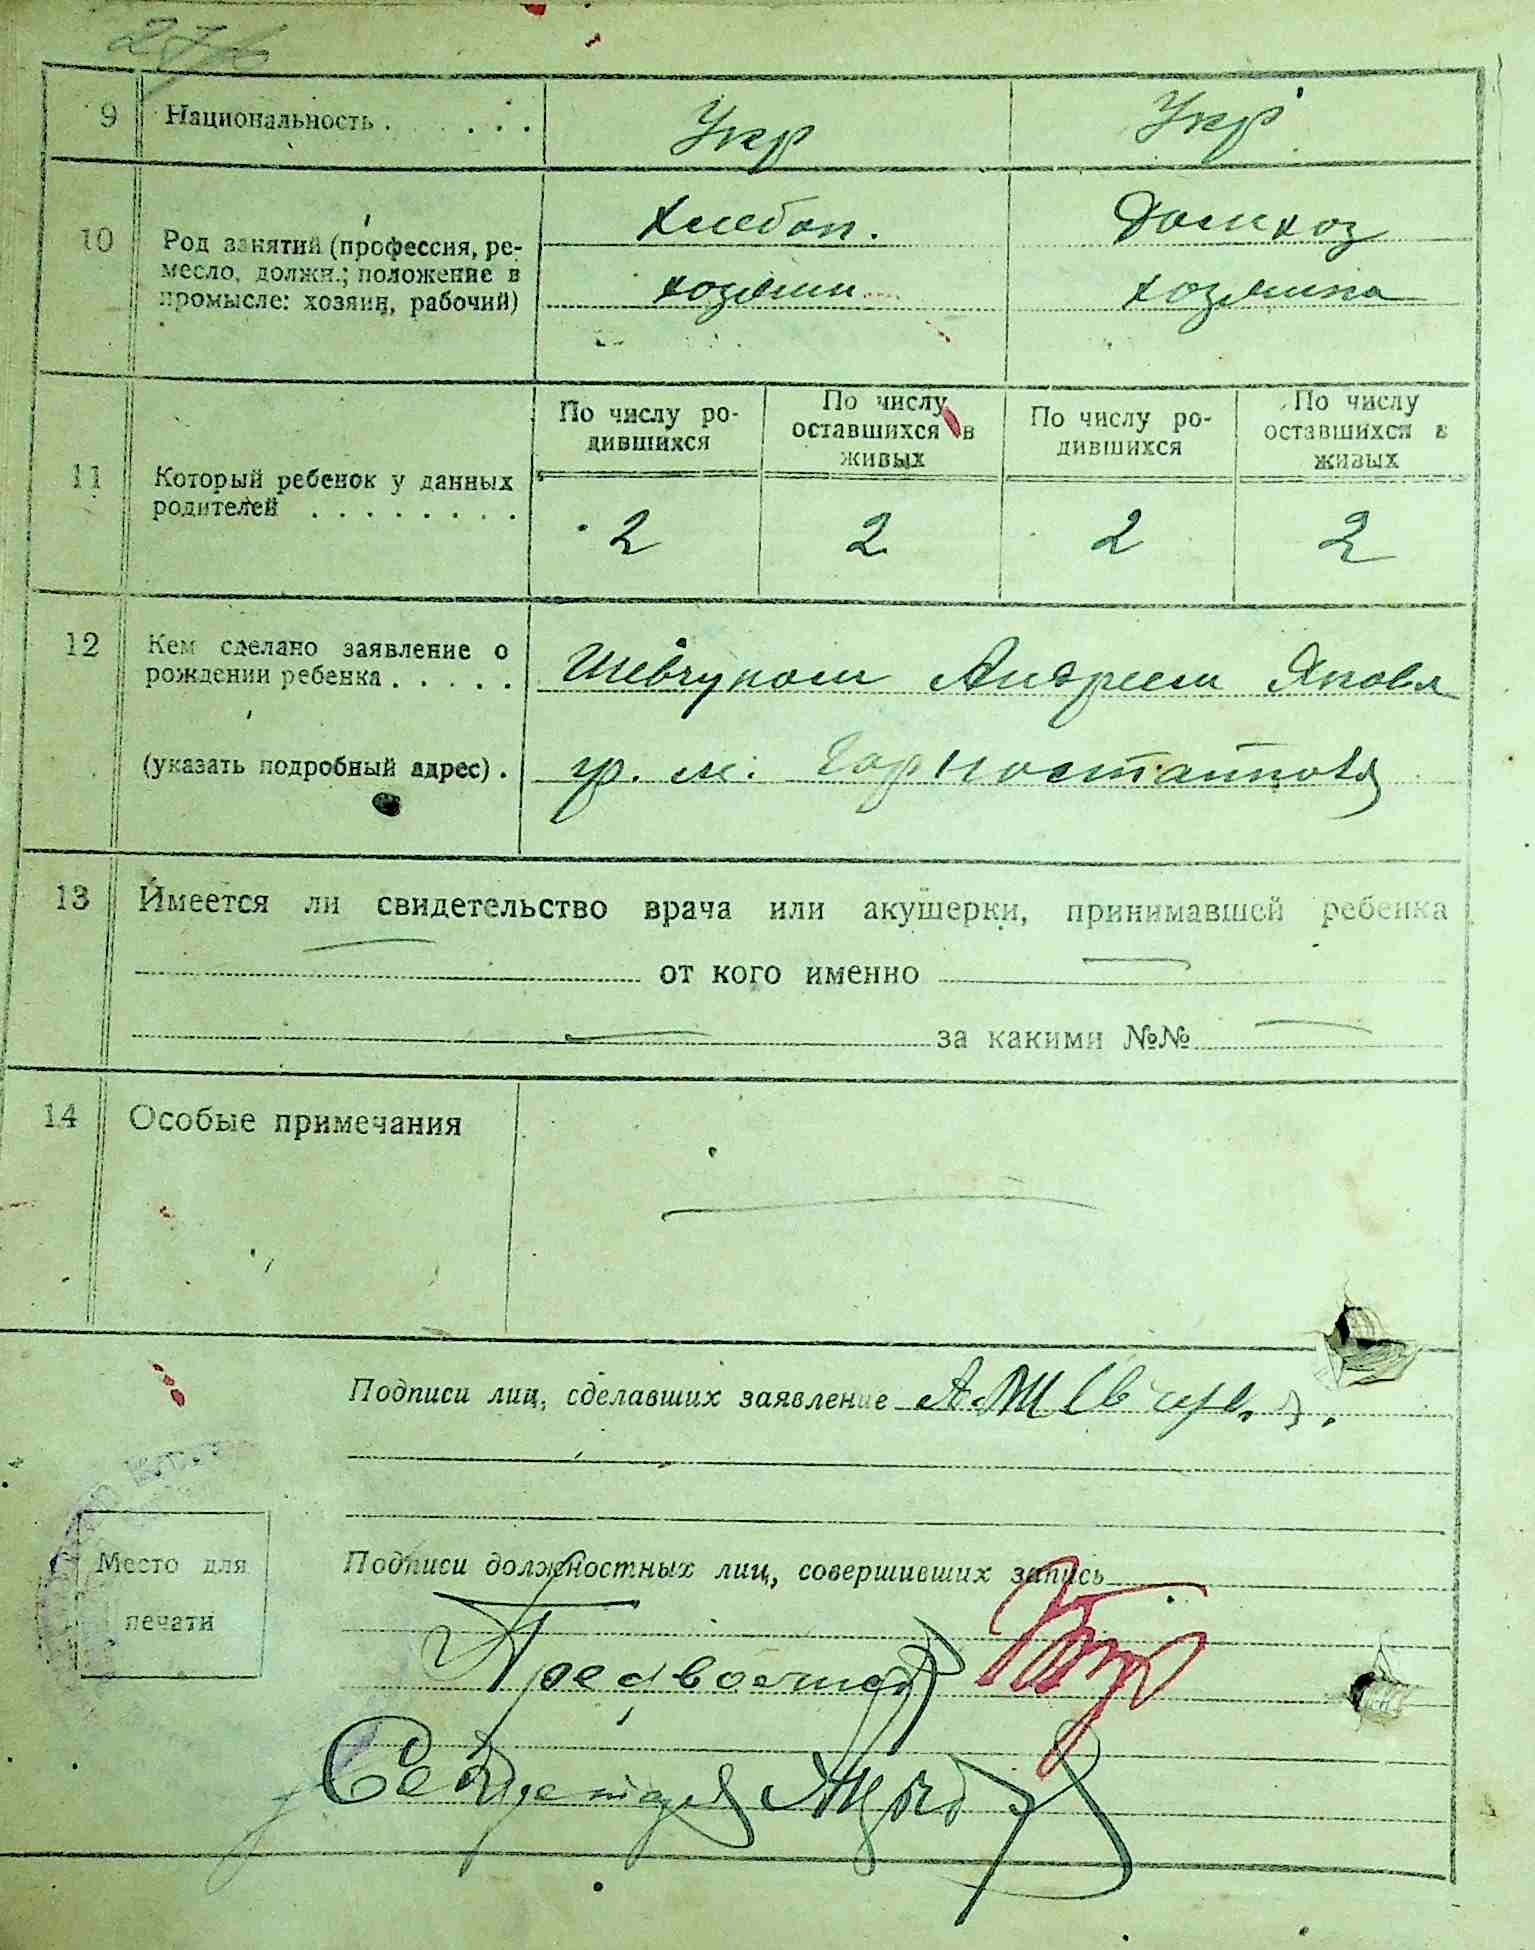 9 Национальность . . . . . Укр Укр
10 Род занятий (профессия, ре-
месло, должн.; положение в
промысле: хозяин, рабочий)
Хлебоп. Домхоз
хозяин хозяина
11 Который ребенок у данных
родителей . . . . . . . .
По числу ро-
дившихся
По числу
оставшихся в
живых
По числу ро-
дившихся
По числу
оставшихся в
живых
2 2 2 2
12 Кем сделано заявление о
рождении ребенка . . . . .
Шевчуком Андреем Яковл
(указать подробный адрес) .
гр. м. Горностайполя
13 Имеется ли свидетельство врача или акушерки, принимавшей ребенка
от кого именно
за какими №№
14 Особые примечания
Подписи лиц, сделавших заявление А. Шевчук
Место для
печати
Подписи должностных лиц, совершивших запись
Секретарь